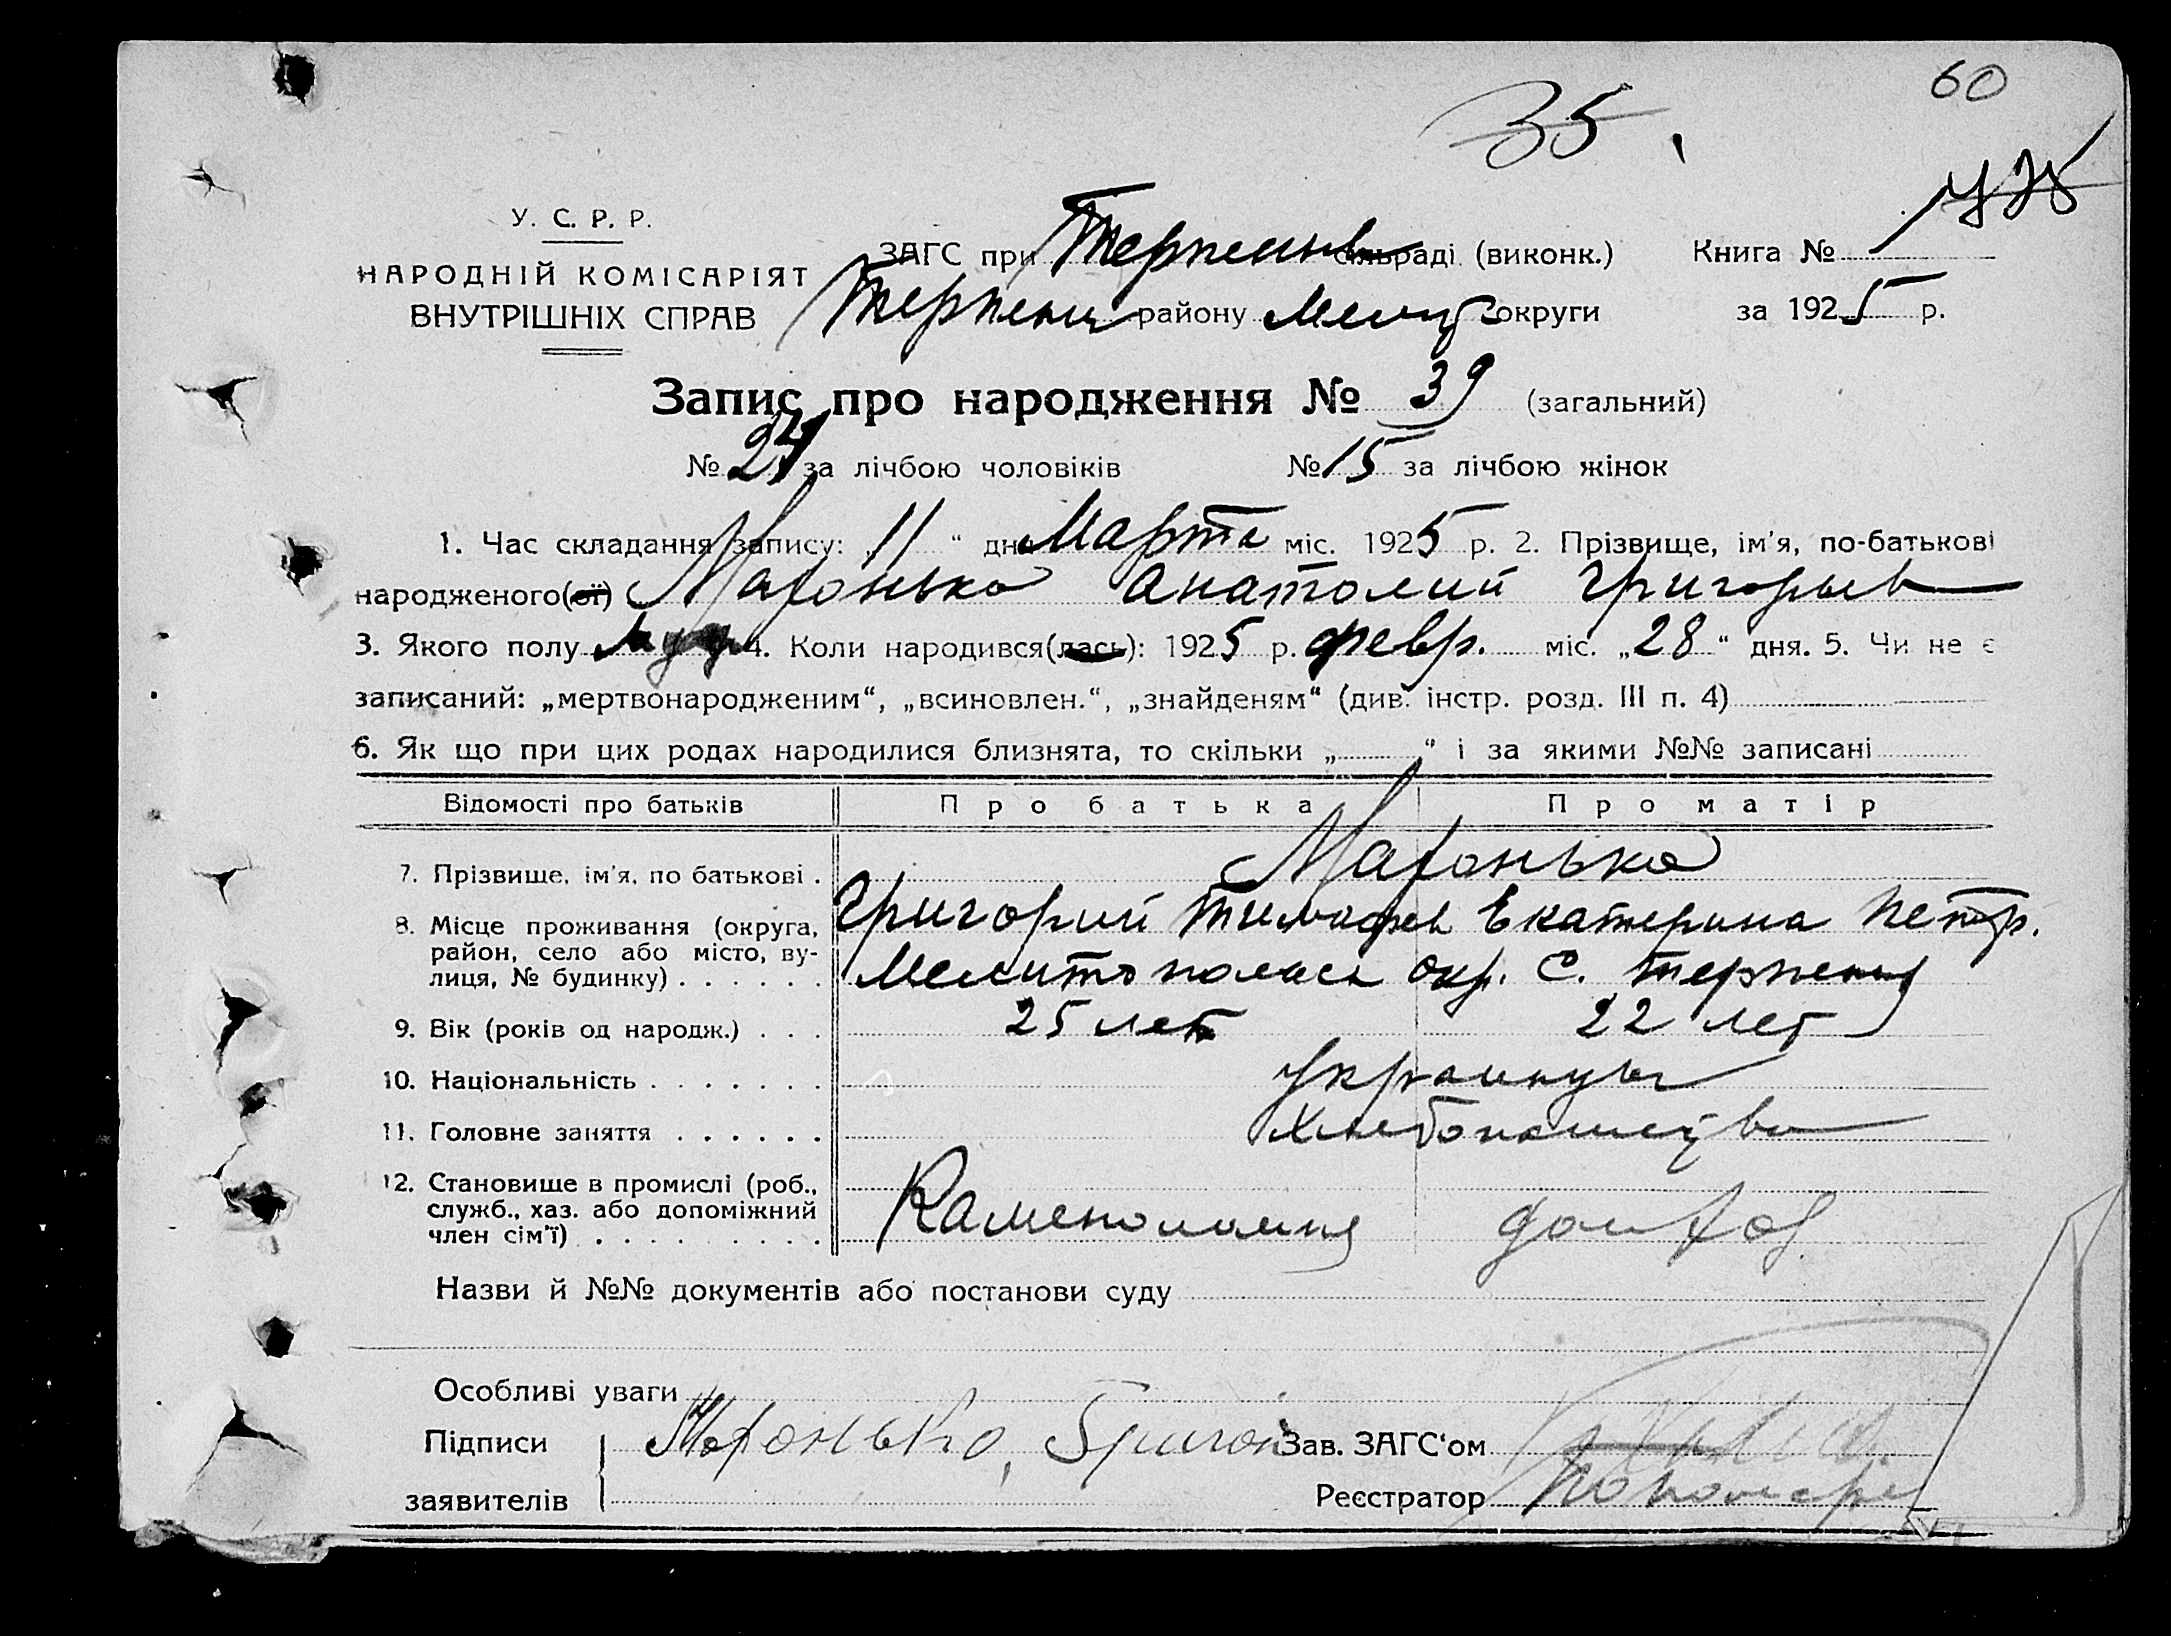 60
35
У. С. Р. Р.
НАРОДНІЙ КОМІСАРІЯТ
ВНУТРІШНІХ СПРАВ
ЗАГС при Терпении сільраді (виконк.) Книга №
Терпени району Мелит округи за 1925 р.
Запис про народження № 39 (загальний)
№ 24 за лічбою чоловіків № 15 за лічбою жінок
1. Час складання запису: „11“ дня Марта міс. 1925 р. 2. Прізвище, ім'я, по-батькові
народженого(ої) Махонько Анатолий Григорьев
3. Якого полу муж 4. Коли народився(лась): 1925 р. февр. міс. „28“ дня. 5. Чи не є
записаний: „мертвонародженим“, „всиновлен.“, „знайденям“ (див. інстр. розд. III п. 4)
6. Як що при цих родах народилися близнята, то скільки „ “ і за якими №№ записані
Відомості про батьків Про батька Про матір
7. Прізвище, ім'я, по батькові . Махонько
Григорий Тимофеев Екатерина Петр.
8. Місце проживання (округа,
район, село або місто, ву-
лиця, № будинку) . . . . . . Мелитопольск окр. С. Терпения
9. Вік (років од народж.) . . . 25 лет 22 лет
10. Національність . . . . . . . Украинцы
11. Головне заняття . . . . . . Хлебопашество
12. Становище в промислі (роб.,
служб., хаз. або допоміжний
член сім'ї) . . . . . . . . . Каменоломня домхоз.
Назви й №№ документів або постанови суду
Особливі уваги
Підписи Махонько, Григори Зав. ЗАГС'ом
заявителів Реєстратор